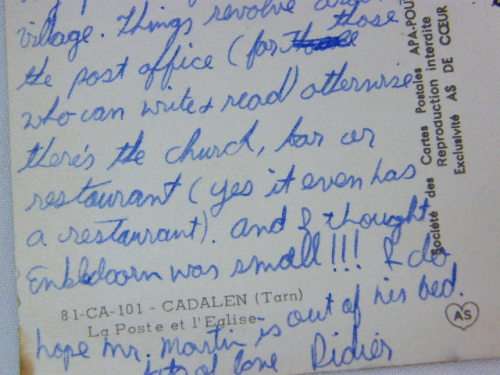 village. Things revolve
the post office (for those
who can write & read) otherwise
there's the church, bar or
restaurant (yes it even has
a restaurant). And I thought
was small!!! I do
81-CA-101 - CADALEN (Tarn)
La Poste et l'Eglise
hope Mr. Martin is out of his bed.
lots of love Didier
Société des Cartes Postales APA-POU
Reproduction interdite
Exclusivité AS DE CŒUR
AS